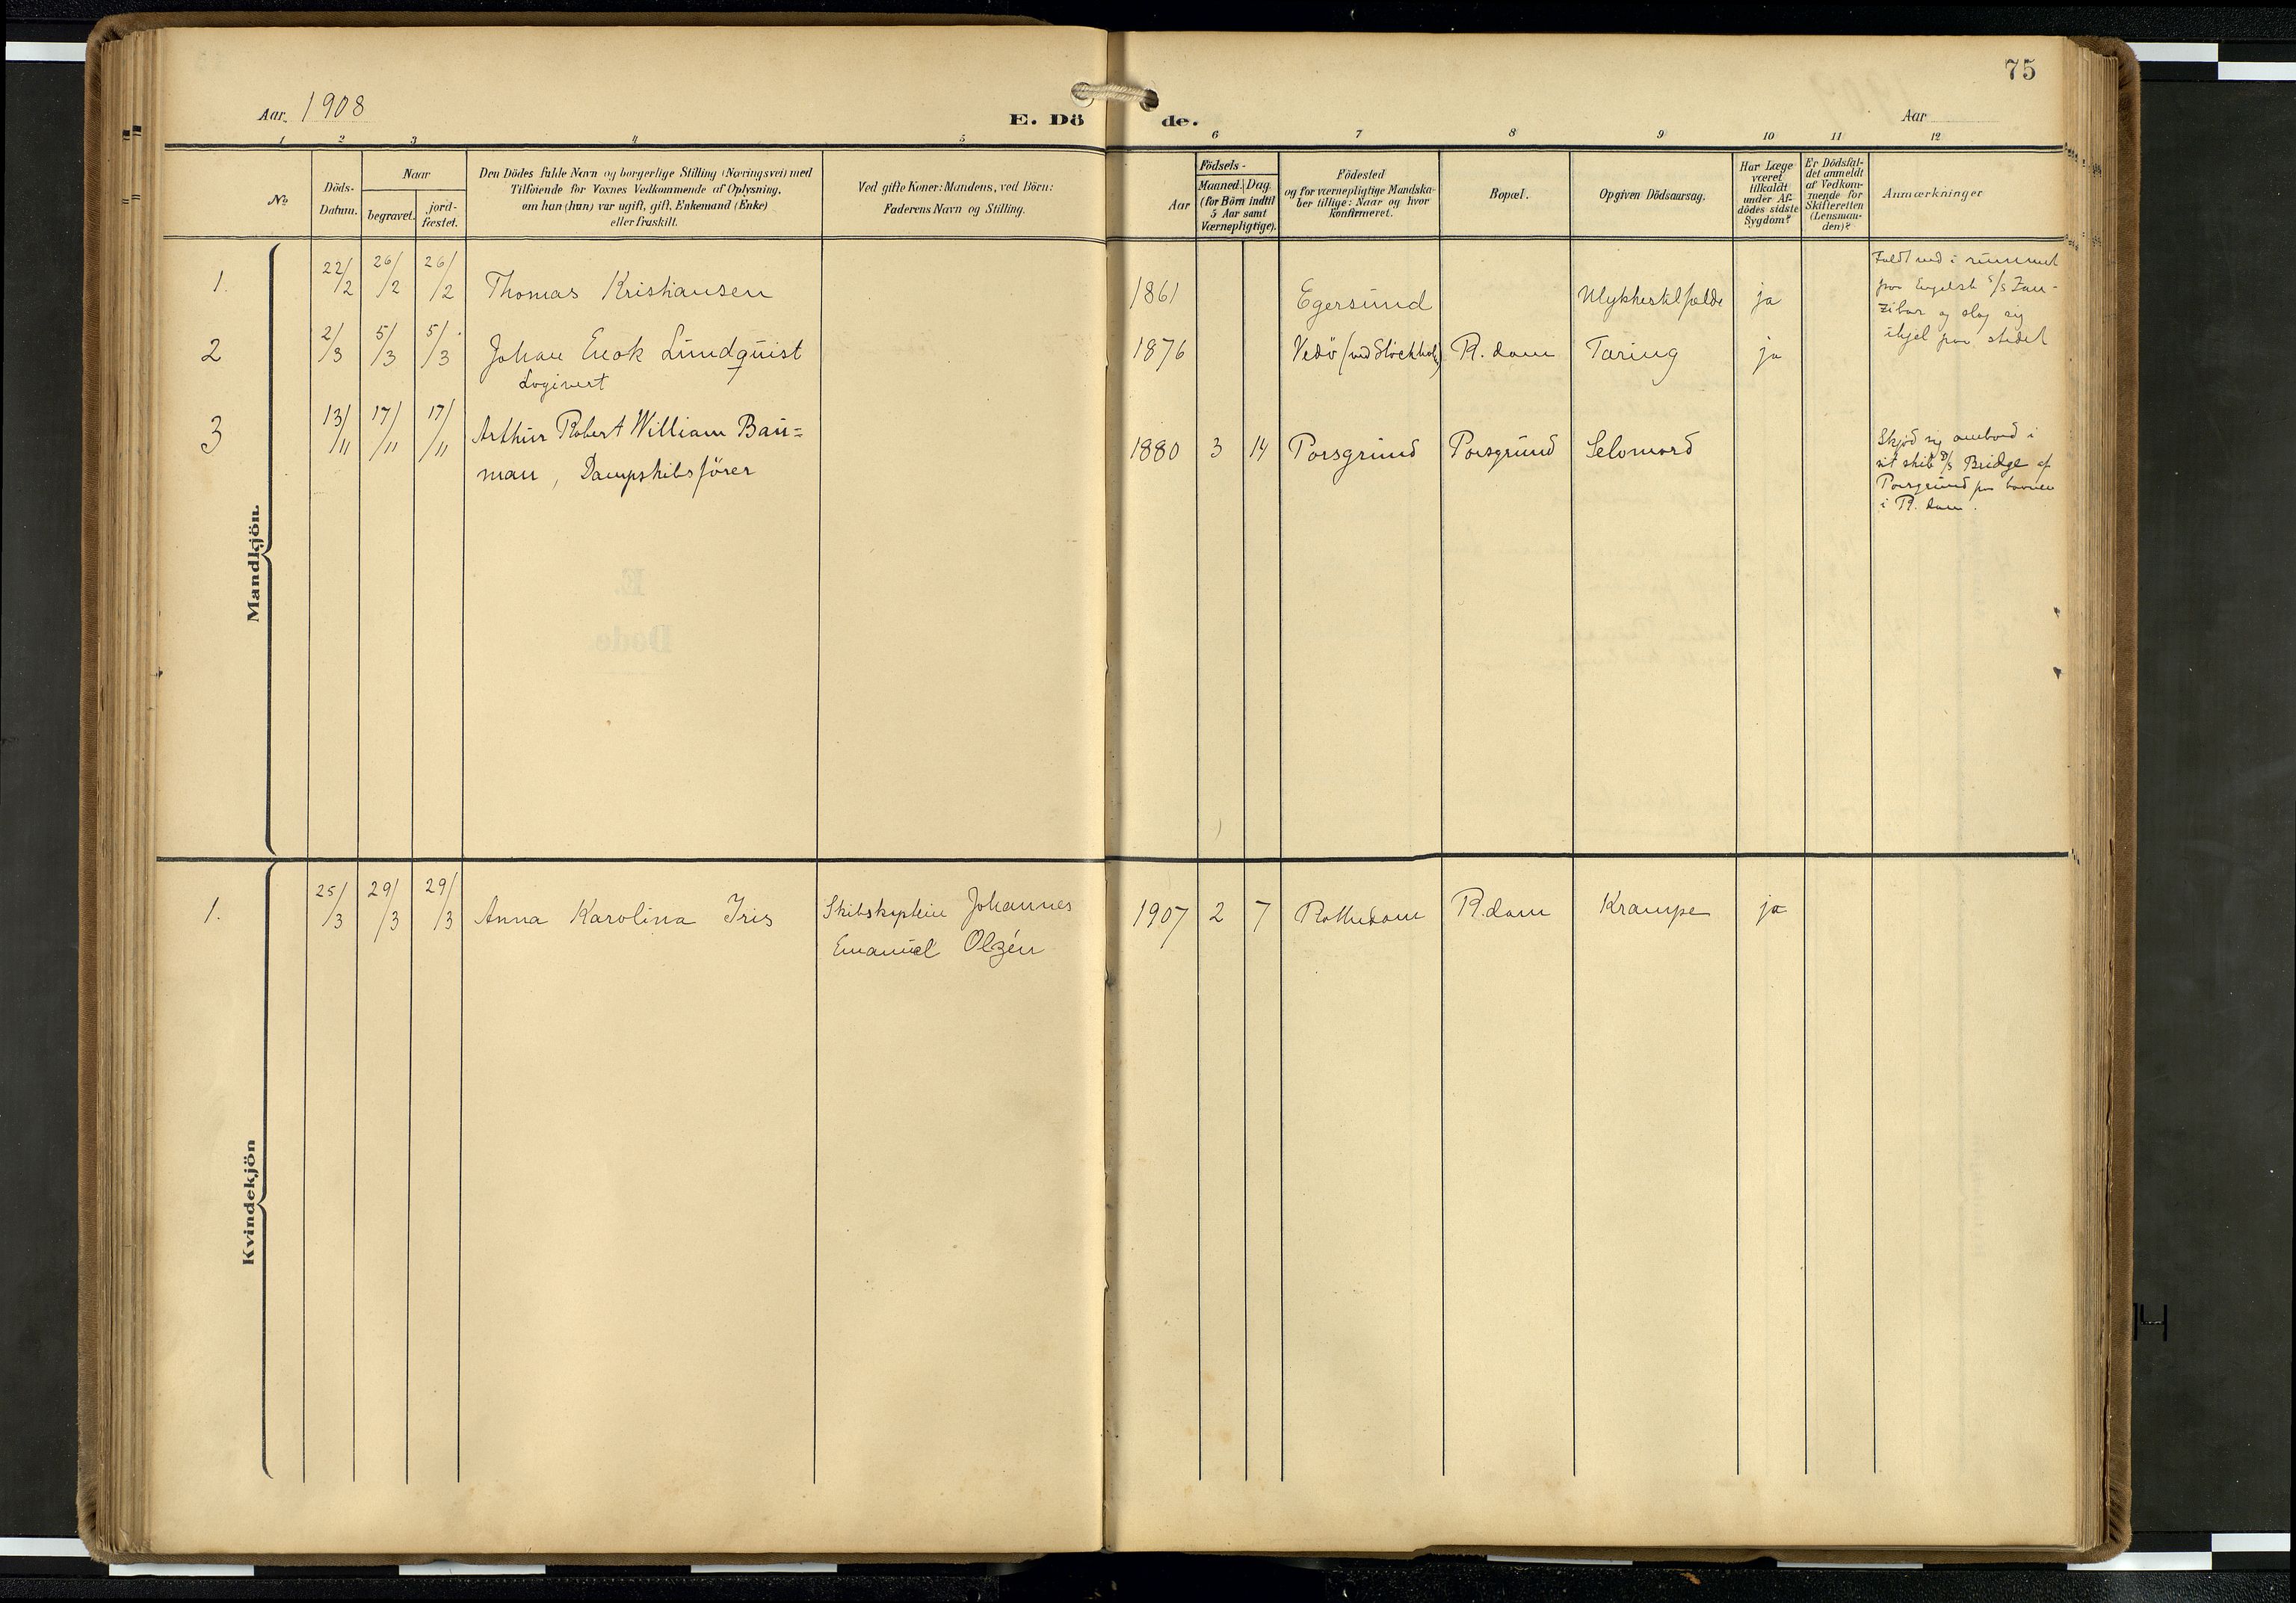 75
Aar. 1908
E. Dö de.
Aar
1 2 3 4 5 6 7 8 9 10 11 12
No
Döds-
Datum.
Naar
begravet.
jord-
fæstet.
Den Dödes fulde Navn og borgerlige Stilling (Næringsvei) med
Tilföiende for Voxnes Vedkommende af Oplysning,
om han (hun) var ugift, gift, Enkemand (Enke)
eller fraskilt.
Ved gifte Koner: Mandens, ved Börn:
Faderens Navn og Stilling.
Födsels-
Aar
Maaned. Dag.
(for Börn indtil
5 Aar samt
Værnepligtige).
Födested
og for værnepligtige Mandska-
ber tillige: Naar og hvor
konfirmeret.
Bopæl.
Opgiven Dödsaarsag.
Har Læge
været
tilkaldt
under Af-
dödes sidste
Sygdom?
Er Dödsfal-
det anmeldt
af Vedkom-
mende for
Skifteretten
(Lensman-
den)?
Anmærkninger
Mandkjön.
1. 22/2 26/2 26/2 Thomas Kristiansen 1861 Egersund Ulykkestilfælde ja
Faldt ned i rummet
paa Engelsk S/S Zan-
zibar og slog sig
ihjel paa stedet
2 2/3 5/3 5/3 Johan Enok Lundquist 1876 Vedö (ved Stockholm) R.dam Tæring ja
Logivert
3 13/11 17/11 17/11 Arthur Robert William Bau=
man, Dampskibsförer 1880 3 14 Porsgrund Porsgrund Selvmord
Skjöd sig ombord i
sit skib D/S Bridge af
Porsgrund paa havnen
i R.dam.
Kvindekjön
1. 25/3 29/3 29/3 Anna Karolina Iris Skibskaptein Johannes 1907 2 7 Rotterdam R.dam Krampe ja
Emanuel Olzén